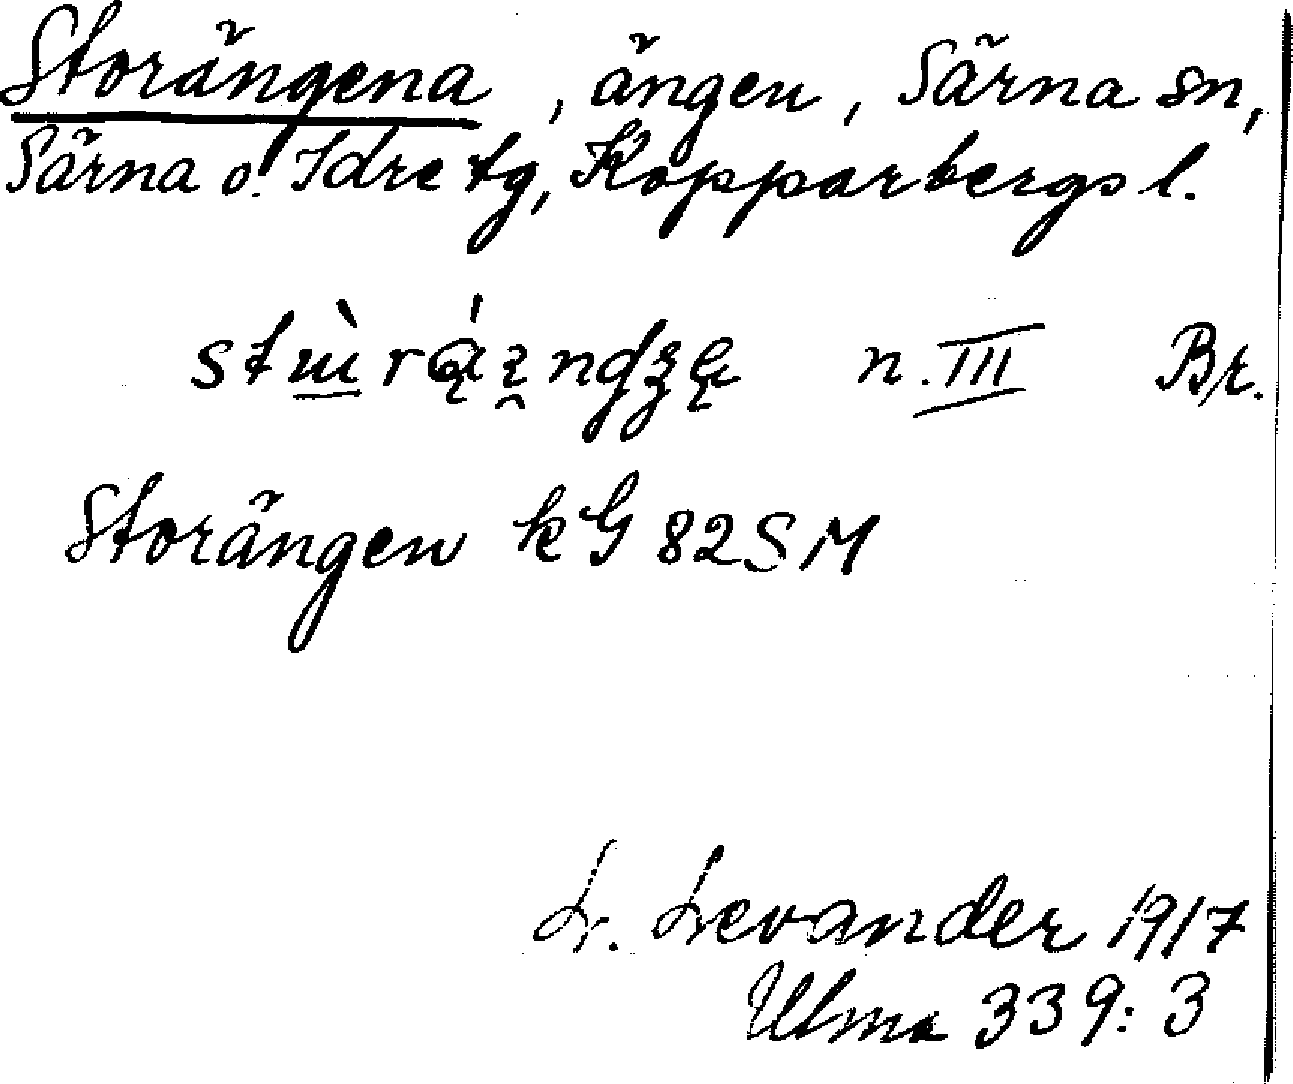 Storängena, ängen, Särna sn,
Särna o. Idre tg, Kopparbergs l.
n. III Br.
Storängen kG 82SM
L. Levander 1917
Ulma 339:3